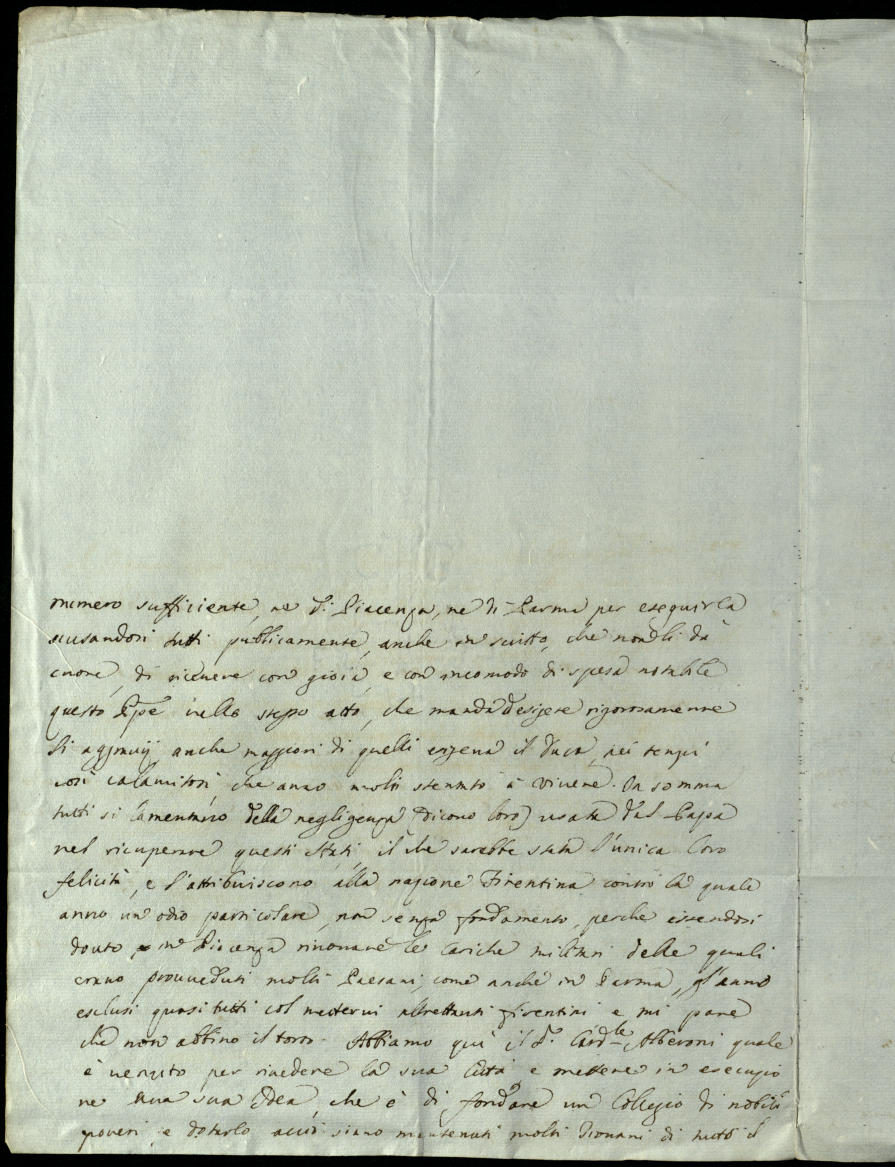 numero sufficiente, ne di Piacenza, ne di Parma per eseguirla
scusandosi tutti publicamente, anche in scritto, che non li dà
cuore, di ricevere con gioia, e con incomodo di spesa notabile
questo Ppe nello stesso atto, che manda desigere rigorosamente
li aggravij anche maggiori di quelli esigeva il Duca, nei tempi
così calamitosi, che anno molti stentato à vivere. In somma
tutti si lamentano della negligenza (dicono loro) usata dal Papa
nel ricuperare questi Stati, il che sarebbe stata l'unica loro
felicità, e l'attribuiscono alla nazione Fiorentina contro la quale
anno un odio particolare, non senza fondamento, perche essendosi
douto in Piacenza rinovare le Cariche militari delle quali
erano proueduti molti Paesani, come anche in Parma, gl'anno
esclusi quasi tutti col mettervi altrettanti Fiorentini e mi pare
che non abbino il torto. Abbiamo qui il Sr. Card.le Alberoni quale
è venuto per rivedere la sua Città e mettere in esecuzio
ne una sua Idea, che è di fondare un Collegio di nobili
poveri, e dotarlo, acciò siano mantenuti molti Giovani di tutto il